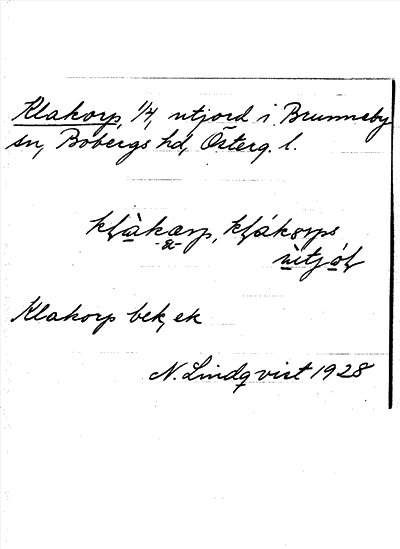 Klakorp, 1/4, utjord i Brunneby
sn, Bobergs hd, Österg. l.
kⱡàkærp, kⱡákȣrps
-ȣ-
ùtjóⱡ
Klakorp bek, ek
N. Lindqvist 1928